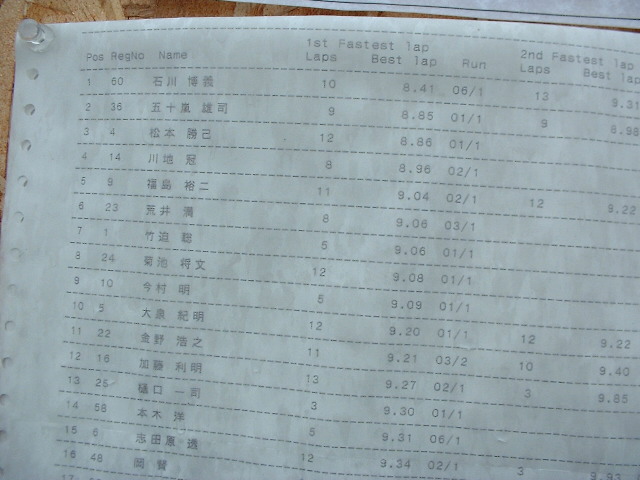 1st Fastest lap 2nd Fastest lap
Pos RegNo Name Laps Best lap Run Laps Best lap
1 60 石川 博義 10 8.41 06/1 13 9.31
2 36 五十嵐 雄司 9 8.85 01/1 9 8.98
3 4 松本 勝己 12 8.86 01/1
4 14 川地 冠 8 8.96 02/1
5 9 福島 裕二 11 9.04 02/1 12 9.22
6 23 荒井 満 8 9.06 03/1
7 1 竹迫 聡 5 9.06 01/1
8 24 菊池 将文 12 9.08 01/1
9 10 今村 明 5 9.09 01/1
10 5 大泉 紀明 12 9.20 01/1 12 9.22
11 22 金野 浩之 11 9.21 03/2 10 9.40
12 16 加藤 利明 13 9.27 02/1 3 9.85
13 25 樋口 一司 3 9.30 01/1
14 58 本木 洋 5 9.31 06/1
15 6 志田原 透 12 9.34 02/1 3 9.93
16 48 岡 賢